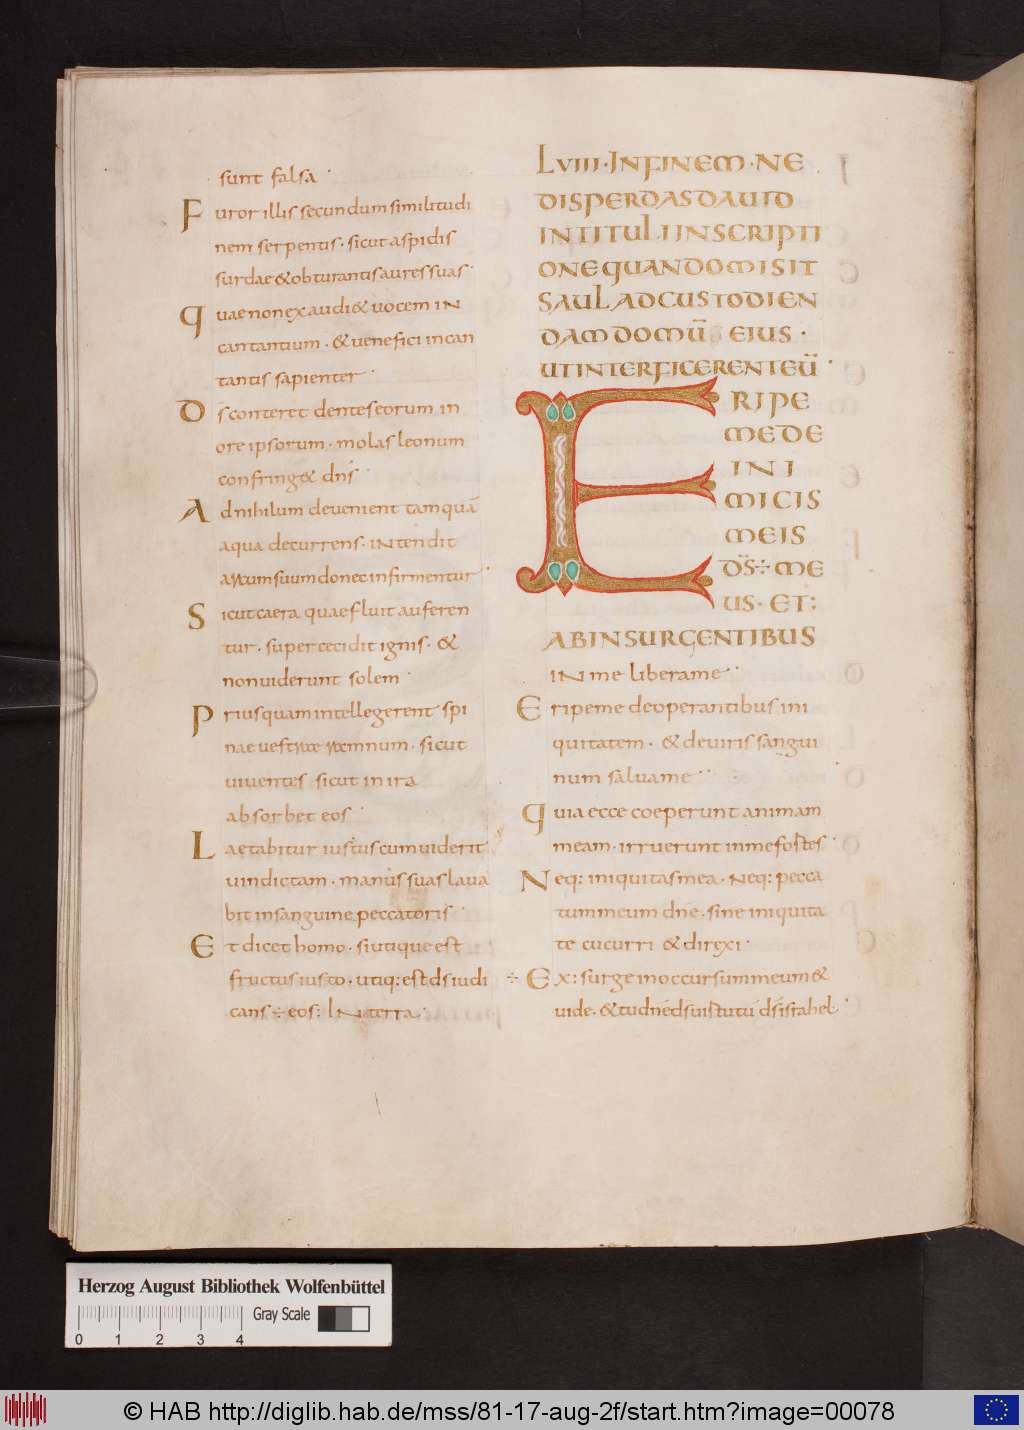 sunt falsa
Furor illis secundum similitudi
nem serpentis · sicut aspidis
surdae & obturantis aures suas
Quae non exaudi& uocem in
cantantium · & uenefici incan
tantis sapienter
Ds conteret dentes eorum in
ore ipsorum · molas leonum
confring& dns
Ad nihilum devenient tamquā
aqua decurrens · intendit
arcum suum donec infirmentur
Sicut caera quae fluit auferen
tur · super cecidit ignis · &
non uiderunt solem
Priusquam intellegerent spi
nae uestrae ramnum · sicut
uiuentes sicut in ira
absorbet eos
Laetabitur iustus cum uiderit
uindictam · manus suas laua
bit in sanguine peccatoris
Et dicet homo · si utique est
fructus iusto · utiq: est ds iudi
cans ÷ eos: In terra
LVIII · IN FINEM · NE
DISPERDAS DAUID
IN TITULI INSCRIPTI
ONE QUANDO MISIT
SAUL AD CUSTODIEN
DAM DOMŪ EIUS ·
UT INTERFICERENT EŪ
ERIPE
ME DE
INI
MICIS
MEIS
DS ÷ ME
US · ET:
AB INSURGENTIBUS
IN me libera me
Eripe me de operantibus ini
quitatem · & de uiris sangui
num salua me
Quia ecce coeperunt animam
meam · irruerunt in me fortes
Neq: iniquitas mea · Neq: pecca
tum meum dne · sine iniquita
te cucurri & direxi ·
÷ Ex: surge in occursum meum &
uide · & tu dne ds uirtutū ds israhel
Herzog August Bibliothek Wolfenbüttel
Gray Scale
0 1 2 3 4
© HAB http://diglib.hab.de/mss/81-17-aug-2f/start.htm?image=00078